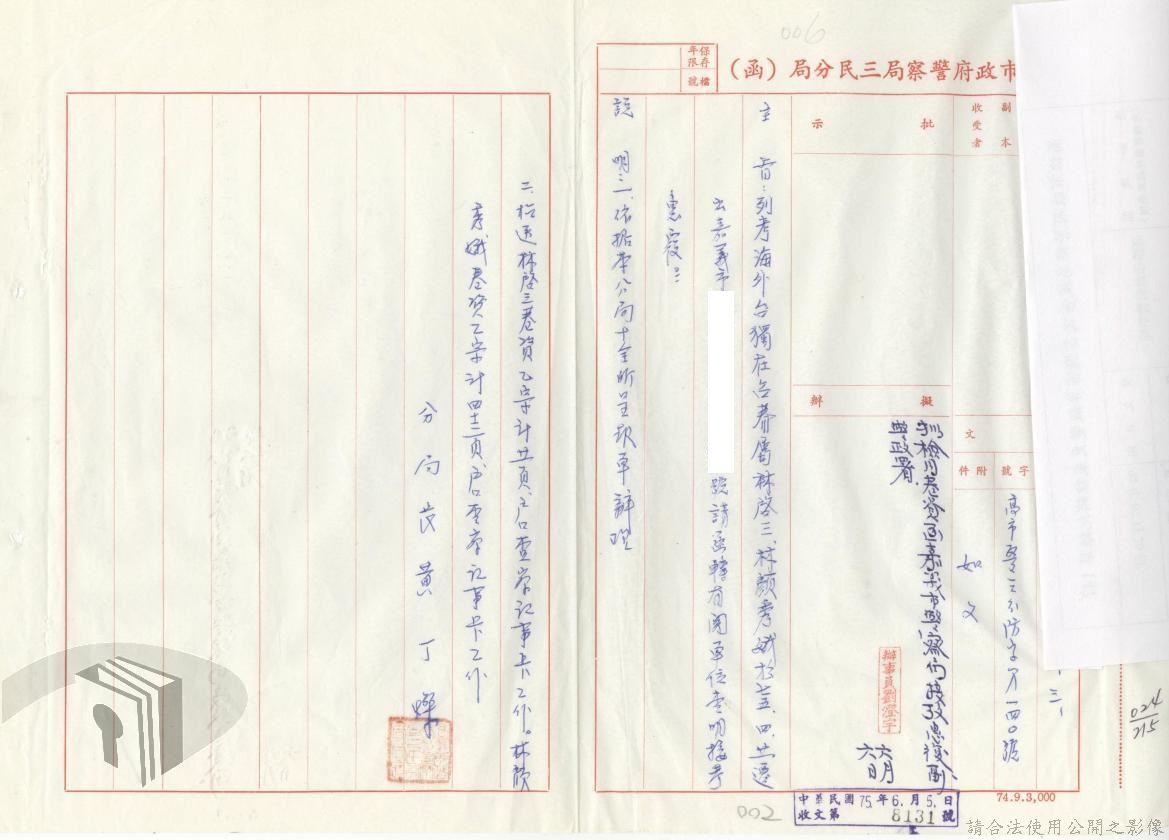 006
市政府警察局三民分局（函）
保存年限
檔號
副本
收受者
批示
擬辦
文
字號
附件
高市警三分防字第一四〇號
如文
主旨：列考海外台獨在台眷屬林啓三、林顏秀娥於七五、四、廿遷
出嘉義市
號請函轉有關單位查明接考
惠覆。
說明：一、依據本分局十全所呈報單辦理
二、檢送林啓三基資乙宗計廿頁、戶口查察記事卡乙份。林顏
秀娥基資乙宗計四十二頁、戶口查察記事卡乙份
分局長黃丁燦
警政署
辦事員劉澄宇
六月六日
中華民國75年6月5日
收文第8131號
74.9.3,000
002
024
215
請合法使用公開之影像